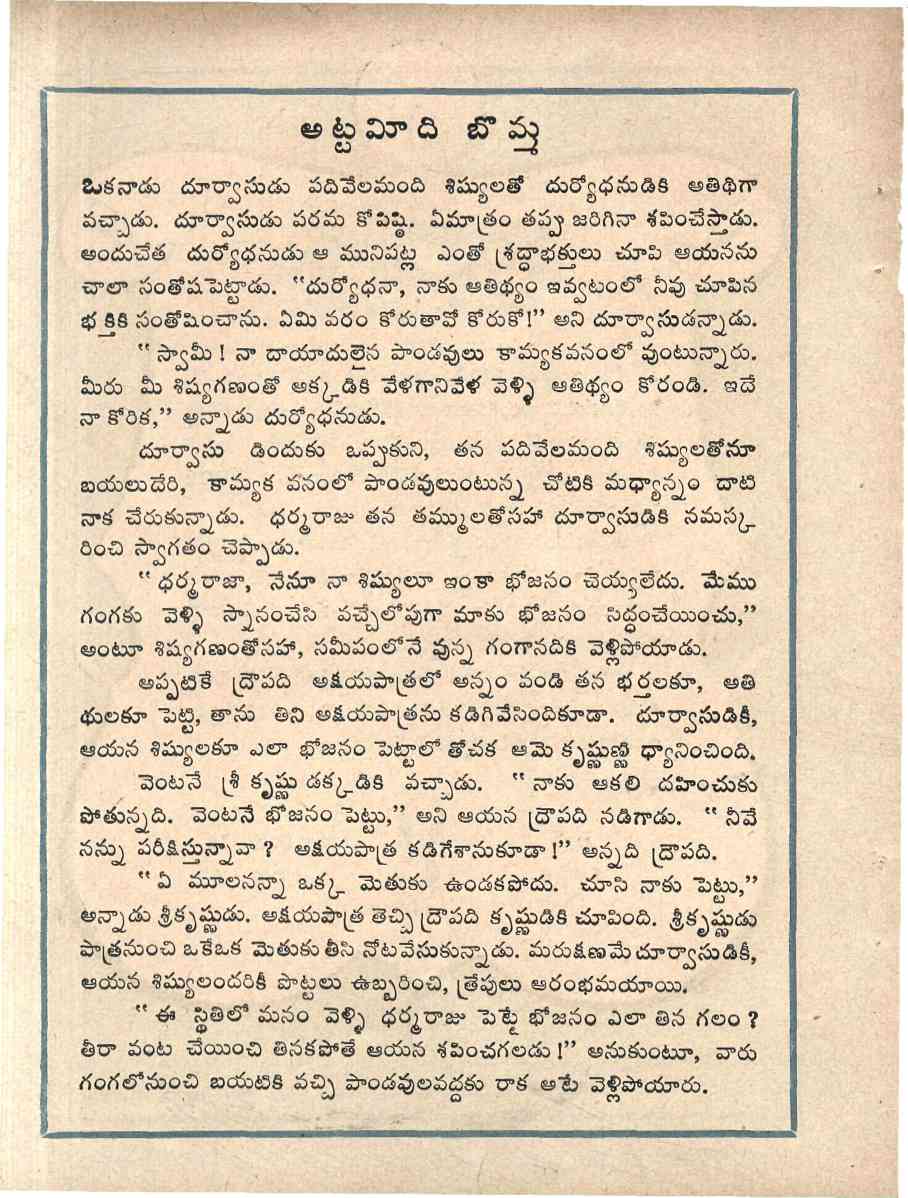 అట్టమీది బొమ్మ
ఒకనాడు దూర్వాసుడు పదివేలమంది శిష్యులతో దుర్యోధనుడికి అతిథిగా
వచ్చాడు. దూర్వాసుడు పరమ కోపిష్ఠి. ఏమాత్రం తప్పు జరిగినా శపించేస్తాడు.
అందుచేత దుర్యోధనుడు ఆ మునిపట్ల ఎంతో శ్రద్ధాభక్తులు చూపి ఆయనను
చాలా సంతోషపెట్టాడు. “దుర్యోధనా, నాకు ఆతిథ్యం ఇవ్వటంలో నీవు చూపిన
భక్తికి సంతోషించాను. ఏమి వరం కోరుతావో కోరుకో!” అని దూర్వాసుడన్నాడు.
“స్వామీ! నా దాయాదులైన పాండవులు కామ్యకవనంలో వుంటున్నారు.
మీరు మీ శిష్యగణంతో అక్కడికి వేళగానివేళ వెళ్ళి ఆతిథ్యం కోరండి. ఇదే
నా కోరిక,” అన్నాడు దుర్యోధనుడు.
దూర్వాసు డిందుకు ఒప్పుకుని, తన పదివేలమంది శిష్యులతోనూ
బయలుదేరి, కామ్యక వనంలో పాండవులుంటున్న చోటికి మధ్యాన్నం దాటి
నాక చేరుకున్నాడు. ధర్మరాజు తన తమ్ములతోసహా దూర్వాసుడికి నమస్క
రించి స్వాగతం చెప్పాడు.
“ధర్మరాజా, నేనూ నా శిష్యులూ ఇంకా భోజనం చెయ్యలేదు. మేము
గంగకు వెళ్ళి స్నానంచేసి వచ్చేలోపుగా మాకు భోజనం సిద్ధంచేయించు,”
అంటూ శిష్యగణంతోసహా, సమీపంలోనే వున్న గంగానదికి వెళ్లిపోయాడు.
అప్పటికే ద్రౌపది అక్షయపాత్రలో అన్నం వండి తన భర్తలకూ, అతి
థులకూ పెట్టి, తాను తిని అక్షయపాత్రను కడిగివేసిందికూడా. దూర్వాసుడికీ,
ఆయన శిష్యులకూ ఎలా భోజనం పెట్టాలో తోచక ఆమె కృష్ణుణ్ణి ధ్యానించింది.
వెంటనే శ్రీ కృష్ణు డక్కడికి వచ్చాడు. “నాకు ఆకలి దహించుకు
పోతున్నది. వెంటనే భోజనం పెట్టు,” అని ఆయన ద్రౌపది నడిగాడు. “నీవే
నన్ను పరీక్షిస్తున్నావా? అక్షయపాత్ర కడిగేశానుకూడా!” అన్నది ద్రౌపది.
“ఏ మూలనన్నా ఒక్క మెతుకు ఉండకపోదు. చూసి నాకు పెట్టు,”
అన్నాడు శ్రీకృష్ణుడు. అక్షయపాత్ర తెచ్చి ద్రౌపది కృష్ణుడికి చూపింది. శ్రీకృష్ణుడు
పాత్రనుంచి ఒకేఒక మెతుకు తీసి నోటవేసుకున్నాడు. మరుక్షణమే దూర్వాసుడికీ,
ఆయన శిష్యులందరికీ పొట్టలు ఉబ్బరించి, త్రేపులు ఆరంభమయాయి.
“ఈ స్థితిలో మనం వెళ్ళి ధర్మరాజు పెట్టే భోజనం ఎలా తిన గలం?
తీరా వంట చేయించి తినకపోతే ఆయన శపించగలడు!” అనుకుంటూ, వారు
గంగలోనుంచి బయటికి వచ్చి పాండవులవద్దకు రాక అటే వెళ్లిపోయారు.